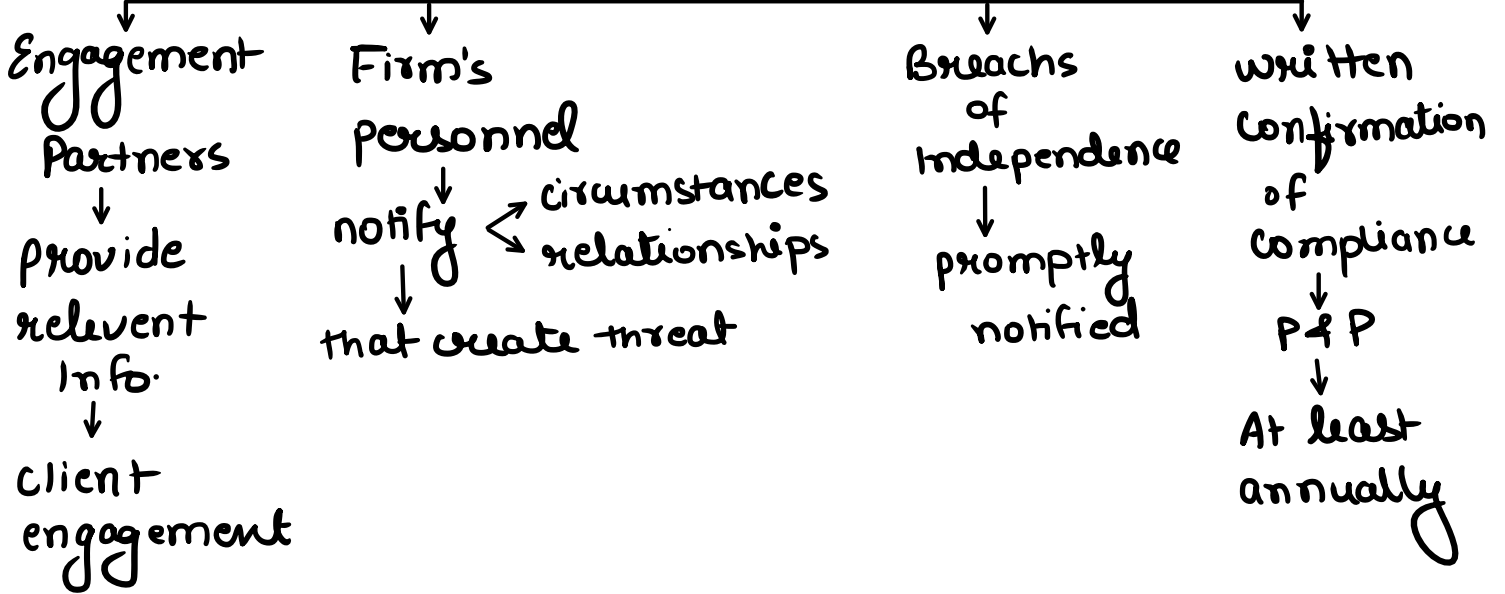 Engagement
Partners
provide
relevent
Info.
client
engagement
Firm's
personnel
notify
circumstances
relationships
that create threat
Breachs
of
Independence
promptly
notified
written
confirmation
of
compliance
P & P
At least
annually